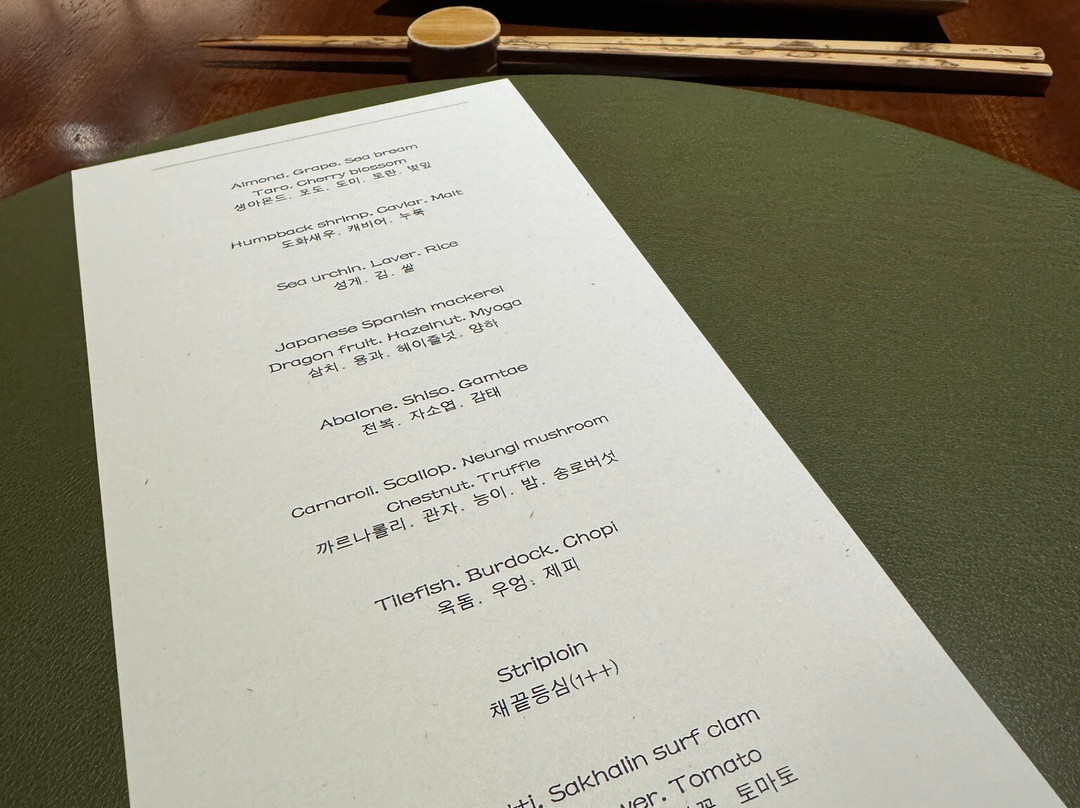 Almond. Grape. Sea bream
Taro. Cherry blossom
생아몬드. 포도. 도미. 토란. 벚잎
Humpback shrimp. Caviar. Malt
도화새우. 캐비어. 누룩
Sea urchin. Laver. Rice
성게. 김. 쌀
Japanese Spanish mackerel
Dragon fruit. Hazelnut. Myoga
삼치. 용과. 헤이즐넛. 양하
Abalone. Shiso. Gamtae
전복. 자소엽. 감태
Carnaroli. Scallop. Neungi mushroom
Chestnut. Truffle
까르나롤리. 관자. 능이. 밤. 송로버섯
Tilefish. Burdock. Chopi
옥돔. 우엉. 제피
Striploin
채끝등심(1++)
Sakhalin surf clam
Tomato
토마토